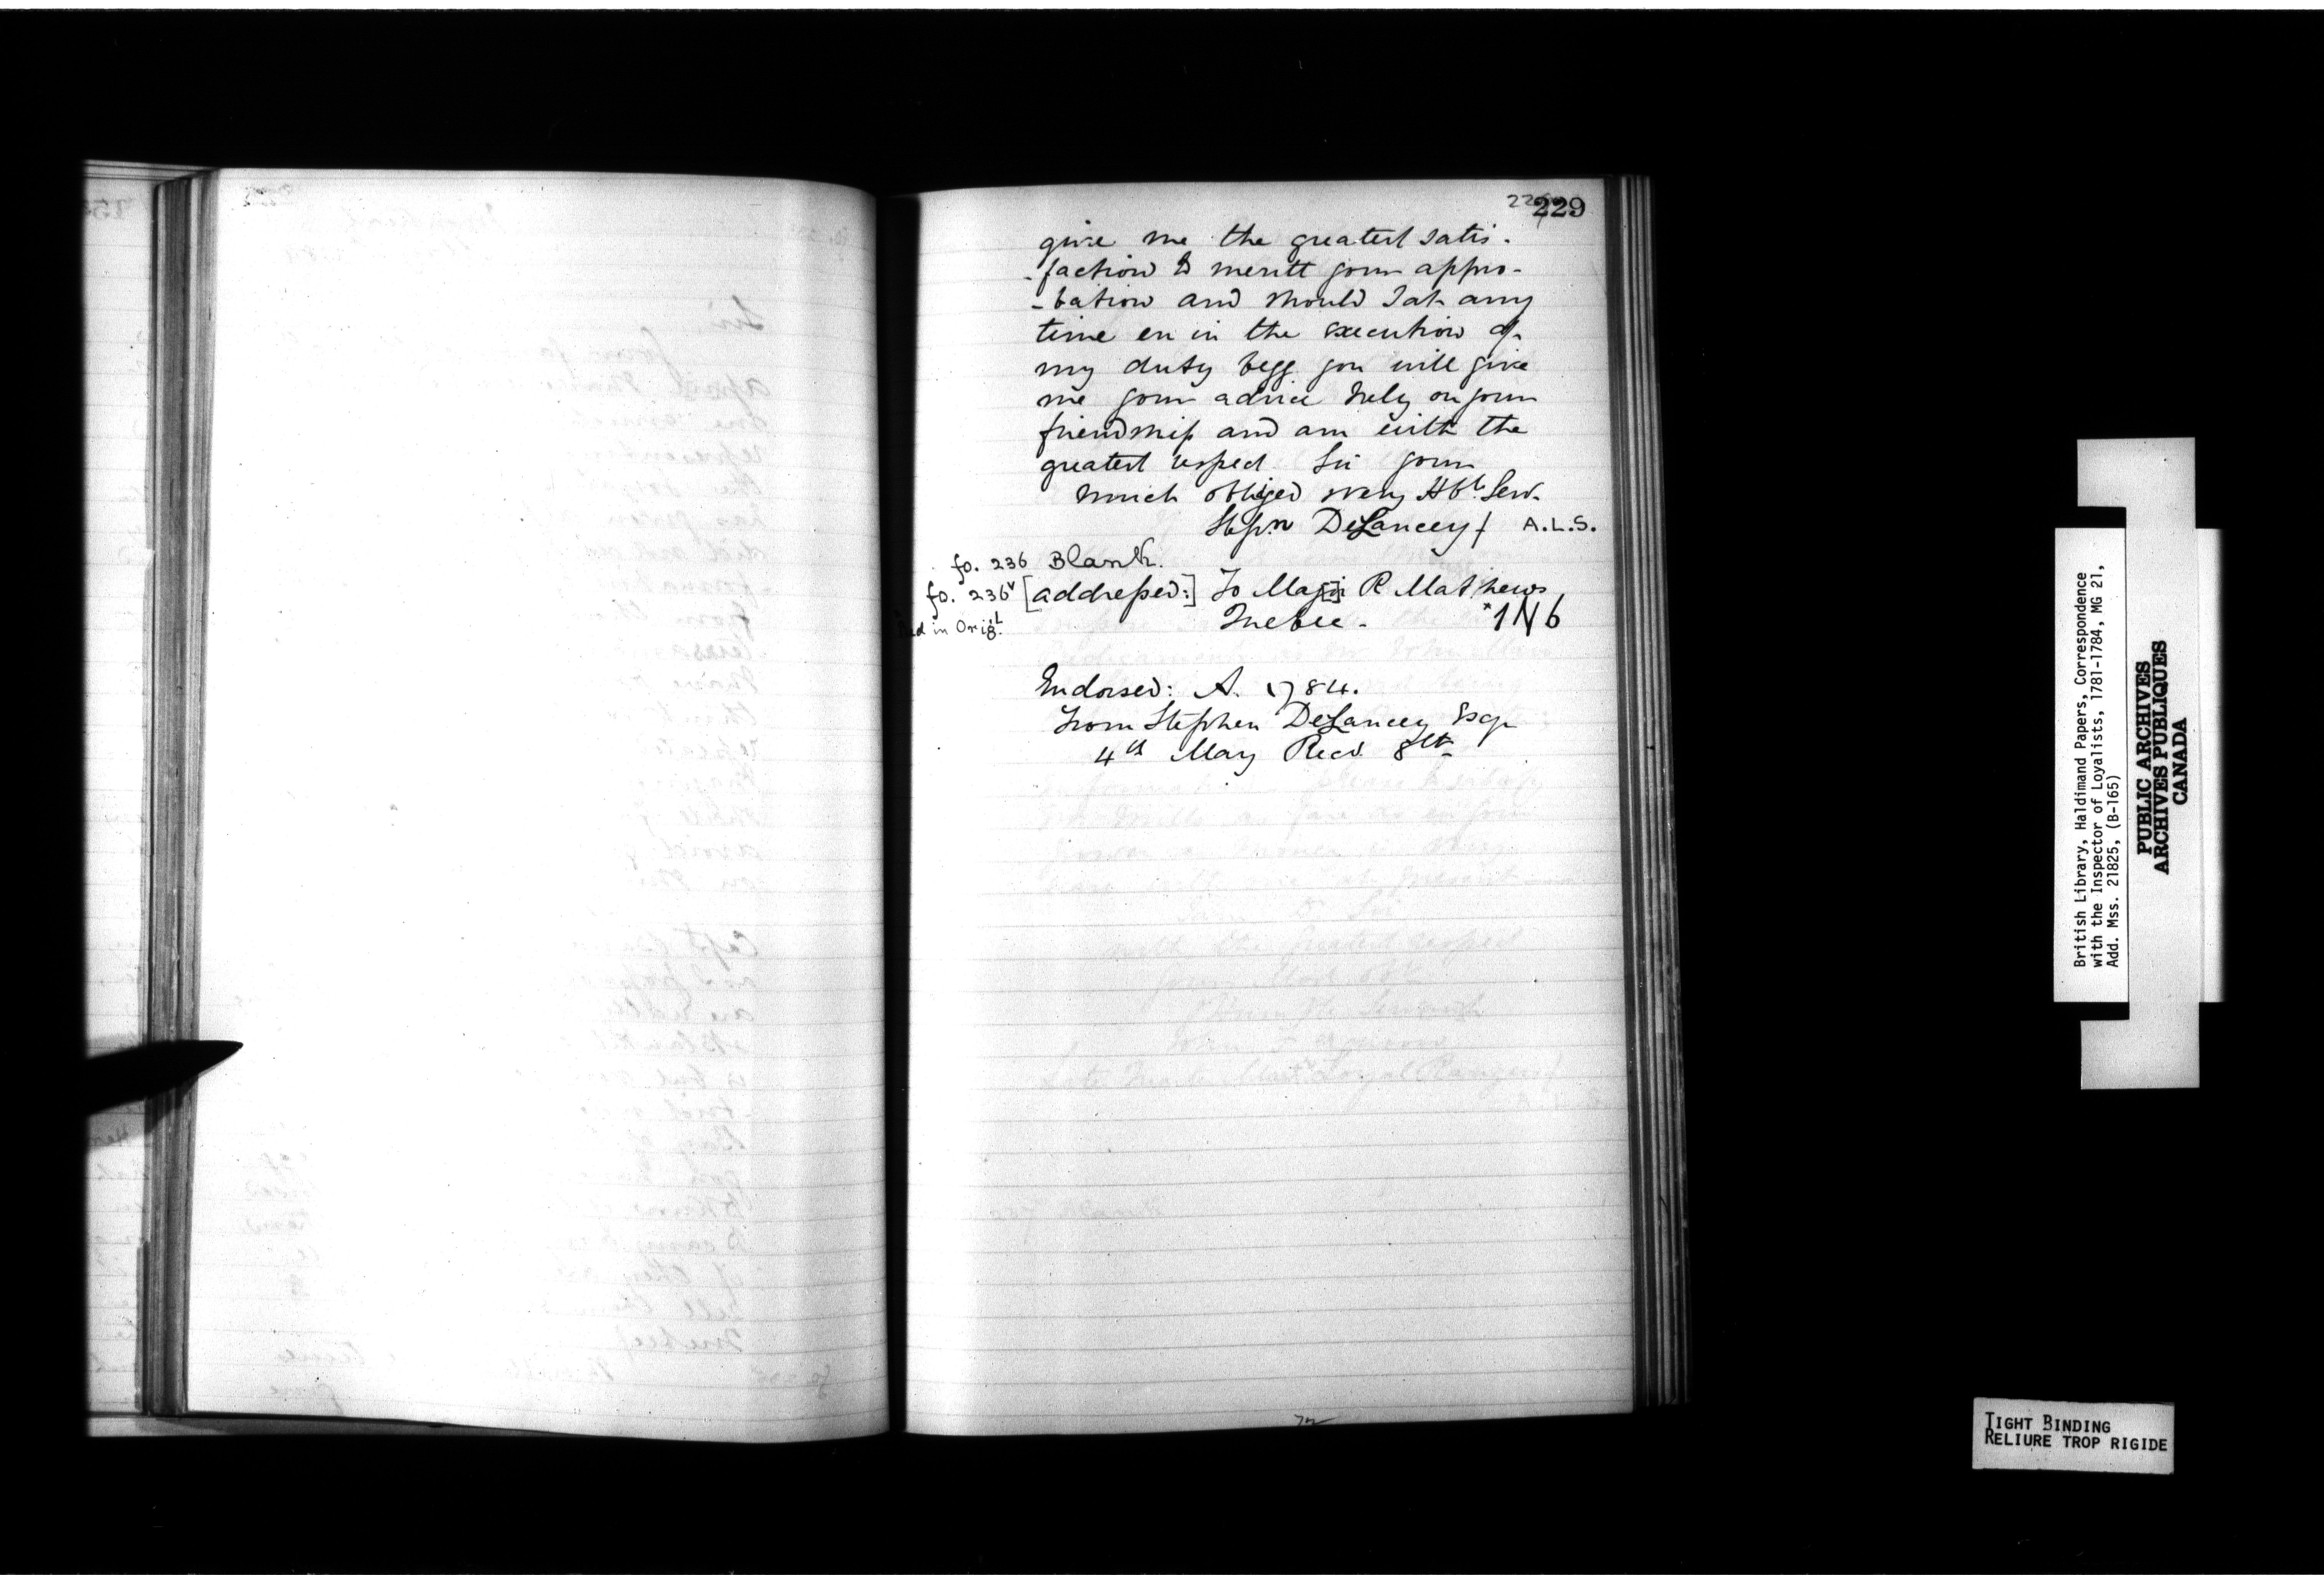 229
give me the greatest satis-
-faction to meritt your appro-
-bation and should I at any
time err in the execution of
my duty begg you will give
me your advice I rely on your
friendship and am with the
greatest respect Sir your
much obliged very Hble Serv.
Stepn DeLancey/ A.L.S.
fo. 236 Blank.
fo. 236v [addressed:] To Major R Mathews
in Origl. Quebec - *1N6
Endorsed: A. 1784.
From Stephen DeLancey Esqr
4th May Recd. 8th
British Library, Haldimand Papers, Correspondence
with the Inspector of Loyalists, 1781-1784, MG 21,
Add. Mss. 21825, (B-165)
PUBLIC ARCHIVES
ARCHIVES PUBLIQUES
CANADA
TIGHT BINDING
RELIURE TROP RIGIDE